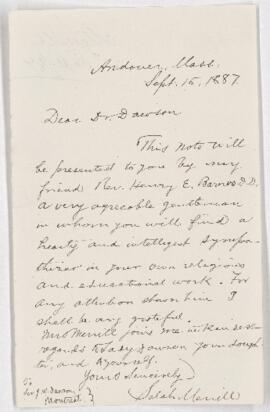 Andover, Mass.
Sept. 15, 1887.
Dear Dr. Dawson
This note will
be presented to you by my
friend Rev. Henry E. Barnes D.D.
a very agreeable gentleman
in whom you will find a
hearty and intelligent sympa-
thizer in your own religious
and educational work. For
any attention shown him I
shall be very grateful.
Mrs Merrill joins me in kindest
regards to Lady Dawson your daugh-
ter, and yourself.
Yours Sincerely
Selah Merrill
To
Sir J. W. Dawson
Montreal